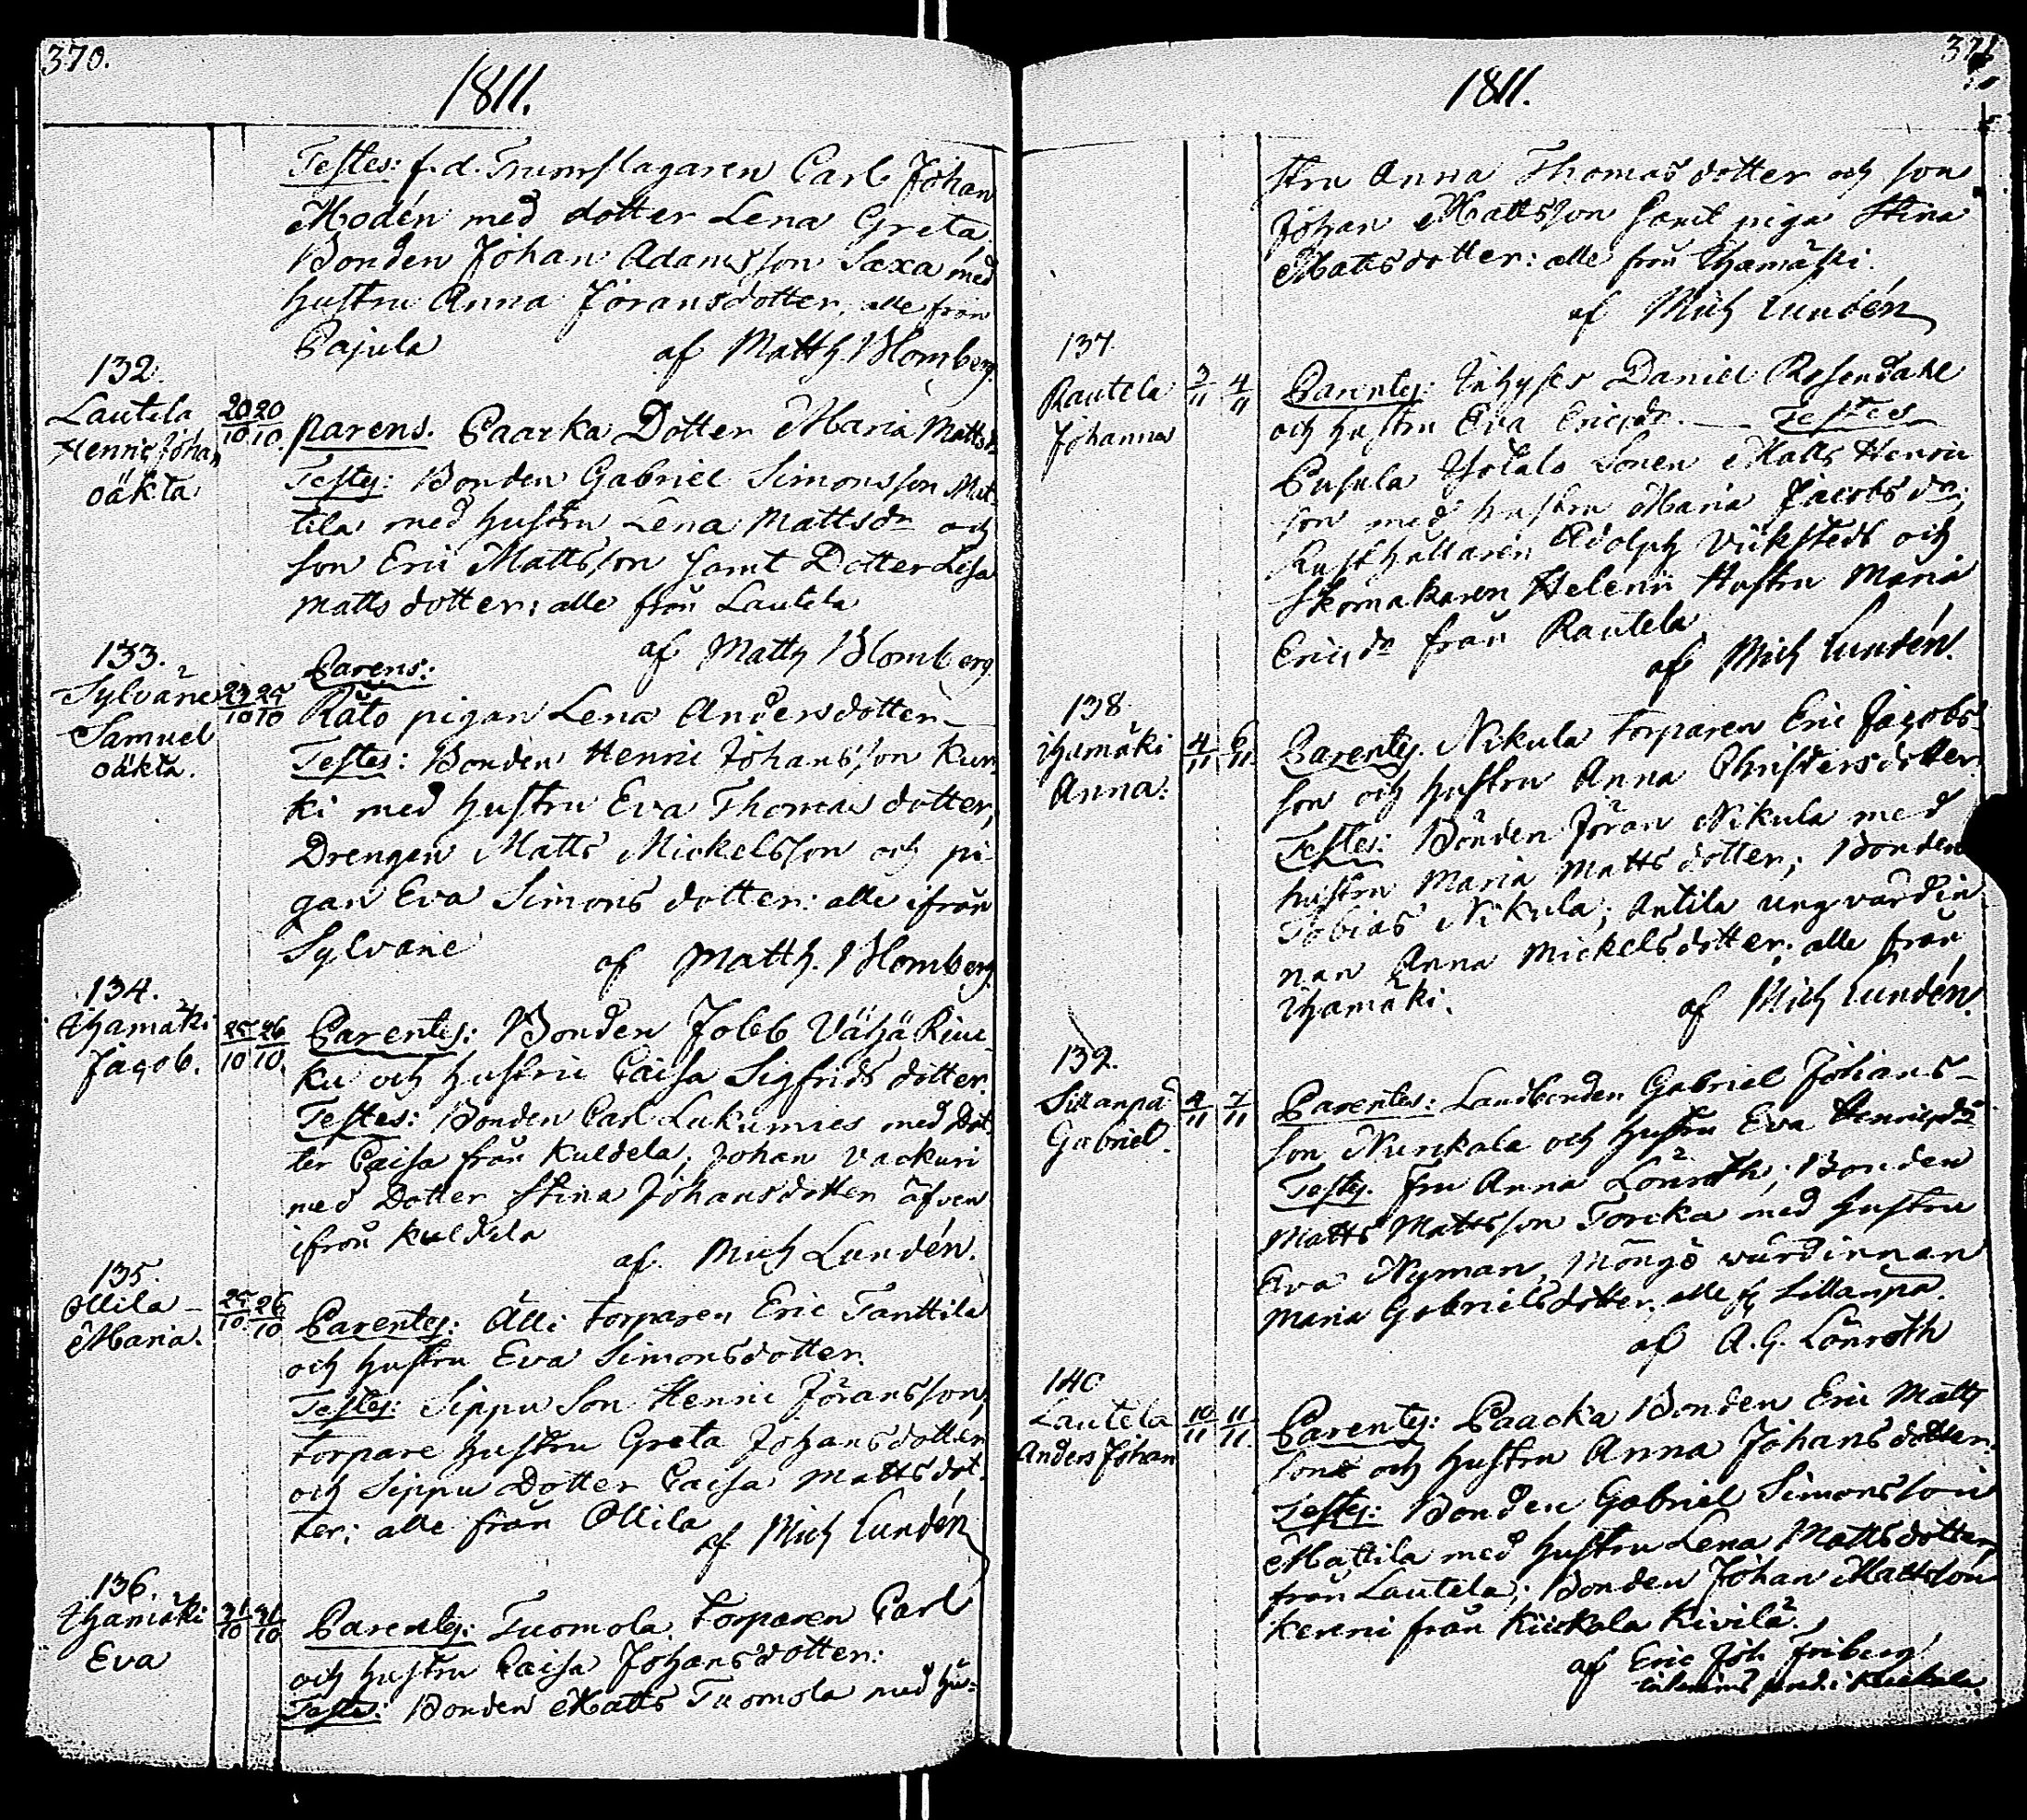 370.
1811.
Testes: f.d. Trumslagaren Carl Johan
Modén med dotter Lena Greta,
Bonden Johan Adamsson Saxa med
hustru Anna Jöransdotter, alle från
Pajula
af Matth. Blomberg.
132.
Lautela
Henric Johan
oäkta
20/10 20/10.
Parens. Paarka Dotter Maria Mattsdr
Testes: Bonden Gabriel Simonsson Mat-
tila med hustru Lena Mattsdr och
son Eric Mattsson samt Dotter Lisa
Mattsdotter: alle från Lautela
af Matth Blomberg
133.
Sylväne
Samuel
oäkta.
23/10 25/10
Parens:
Räto pigan Lena Andersdotter
Testes: Bonden Henric Johansson Kur-
ki med hustru Eva Thomasdotter,
Drengen Matts Mickelsson och pi-
gan Eva Simonsdotter: alle ifrån
Sylväne
af Matth. Blomberg.
134.
Ihamäki
Jacob.
25/10 26/10.
Parentes: Bonden Joleb Vähä Kiuc-
ku och hustru Caisa Sigfridsdotter.
Testes: Bonden Carl Lukumies med Dot-
ter Caisa från Kuldela; Johan Vackuri
med Dotter Stina Johansdotter äfven
ifrån Kuldela
af Mich Lundén.
135.
Ollila
Maria.
25/10. 26/10
Parentes: Älli torparen Eric Tanttila
och hustru Eva Simonsdotter.
Testes: Sippu Son Henric Jöransson;
torpare hustru Greta Johansdotter
och Sippu Dotter Caisa Mattsdot-
ter: alle från Ollila
af Mich Lundén
136.
Ihamäki
Eva
31/10 31/10
Parentes: Tuomola torparen Carl
och hustru Caisa Johansdotter:
Testes: Bonden Matts Tuomola med hu-
371
1811.
stru Anna Thomasdotter och son
Johan Mattsson samt piga Stina
Mattsdotter: alle från Ihamäki.
af Mich Lundén
137.
Rautela
Johanna
3/11 4/11
Parentes: Inhyses Daniel Rosendahl
och hustru Eva Ericsdr. Testes
Pusula Isotalo Sonen Matts Henric
son med hustru Maria Jacobsdr;
Rusthållaren Adolph Vickstedt och
Skomakaren Helenii Hustru Maria
Ericsdr från Rautela
af Mich Lundén.
138
Ihamäki
Anna:
4/11 6/11.
Parentes. Nikula torparen Eric Jacobs-
son och hustru Anna Christersdotter.
Testes: Bonden Jöran Nikula med
hustru Maria Mattsdotter; Bonden
Tobias Nikula; Antila ungvärdin-
nan Anna Mickelsdotter; alle från
Ihamäki.
af Mich Lundén.
139.
Sillanpä
Gabriel.
4/11 7/11
Parentes: Landbonden Gabriel Johans-
son Nurckala och hustru Eva Henricsdr
Testes. Fru Anna Lönroth; Bonden
Matts Mattsson Torcka med hustru
Eva Nyman, Möngö wärdinnan
Maria Gabrielsdotter, alle fr Sillanpä.
af A. G. Lönroth
140
Lautela
Anders Johan
10/11 11/11.
Parentes: Paacka Bonden Eric Matts
son och hustru Anna Johansdotter.
Testes: Bonden Gabriel Simonsson
Mattila med hustru Lena Mattsdotter,
från Lautela; Bonden Johan Mattsson
Kenni från Kiickala Kivilä.
af Eric Joh Friberg